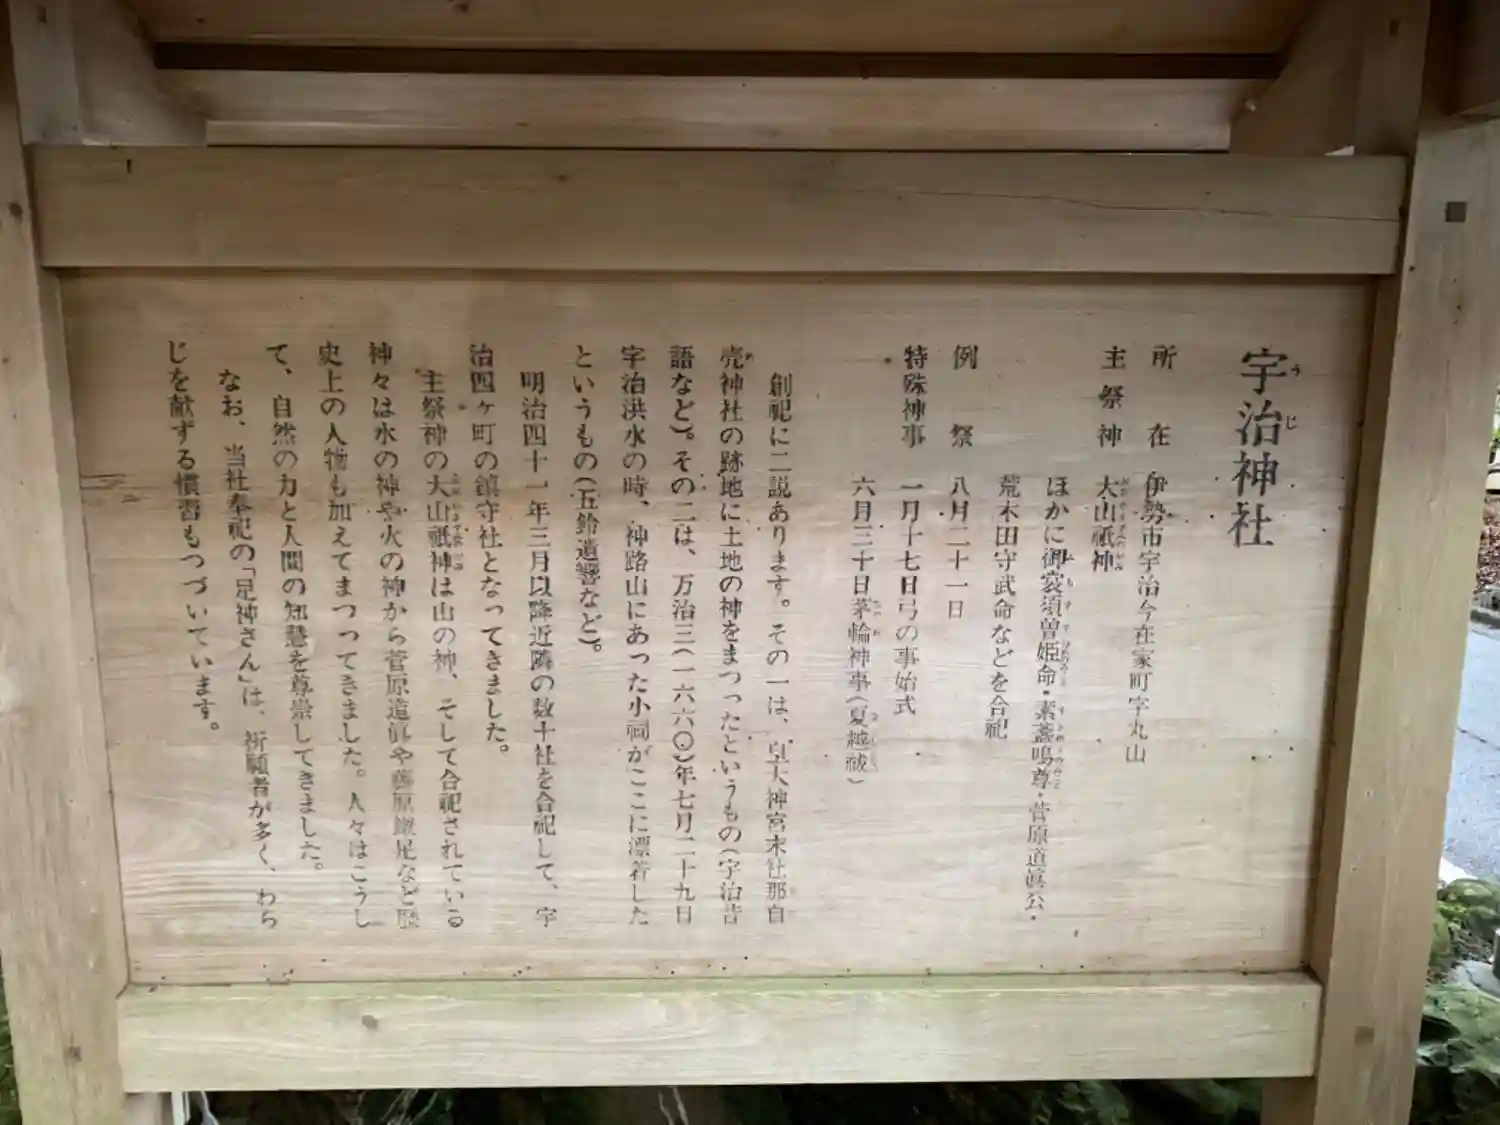 宇治神社
所在 伊勢市宇治今在家町字丸山
主祭神 大山祇神
ほかに御裳須曽姫命・素盞嗚尊・菅原道眞公・
荒木田守武命などを合祀
例祭 八月二十一日
特殊神事 一月十七日弓の事始式
六月三十日茅輪神事(夏越祓)
創祀に二説あります。その一は、皇大神宮末社那自
売神社の跡地に土地の神をまつったというもの(宇治昔
語など)。その二は、万治三(一六六〇)年七月二十九日
宇治洪水の時、神路山にあった小祠がここに漂着した
というもの(五鈴遺響など)。
明治四十一年三月以降近隣の数十社を合祀して、宇
治四ヶ町の鎮守社となってきました。
主祭神の大山祇神は山の神、そして合祀されている
神々は水の神や火の神から菅原道眞や藤原鎌足など歴
史上の人物も加えてまつってきました。人々はこうし
て、自然の力と人間の知慧を尊崇してきました。
なお、当社奉祀の「足神さん」は、祈願者が多く、わら
じを献ずる慣習もつづいています。